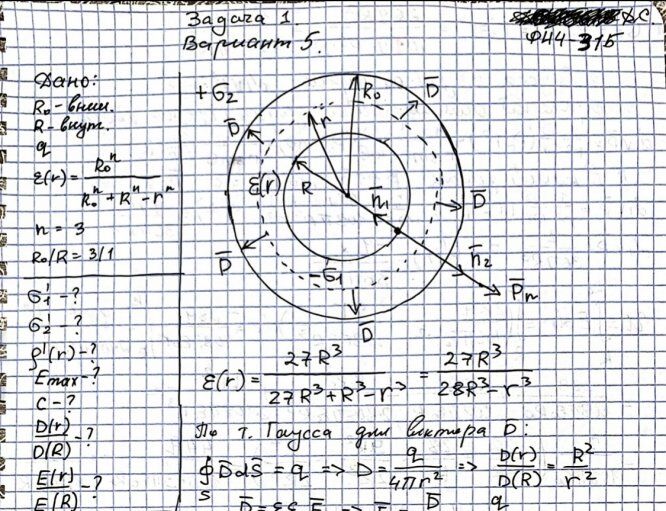 Задача 1.
Вариант 5.
ФН4-31Б
Дано:
R₀ - внеш.
R - внут.
q
ε(r) = R₀ⁿ / (R₀ⁿ + Rⁿ - rⁿ)
n = 3
R₀/R = 3/1
σ₁' - ?
σ₂' - ?
ρ'(r) - ?
Emax - ?
C - ?
D(r)/D(R) - ?
E(r)/E(R) - ?
+σ₂
D̄
R₀
D̄
r
ε(r)
R
n̄₁
D̄
D̄
-σ₁
n̄₂
P̄n
D̄
ε(r) = 27R³ / (27R³ + R³ - r³) = 27R³ / (28R³ - r³)
По т. Гаусса для вектора D̄:
∮ D̄dS̄ = q => D = q / 4πr² => D(r)/D(R) = R²/r²
S